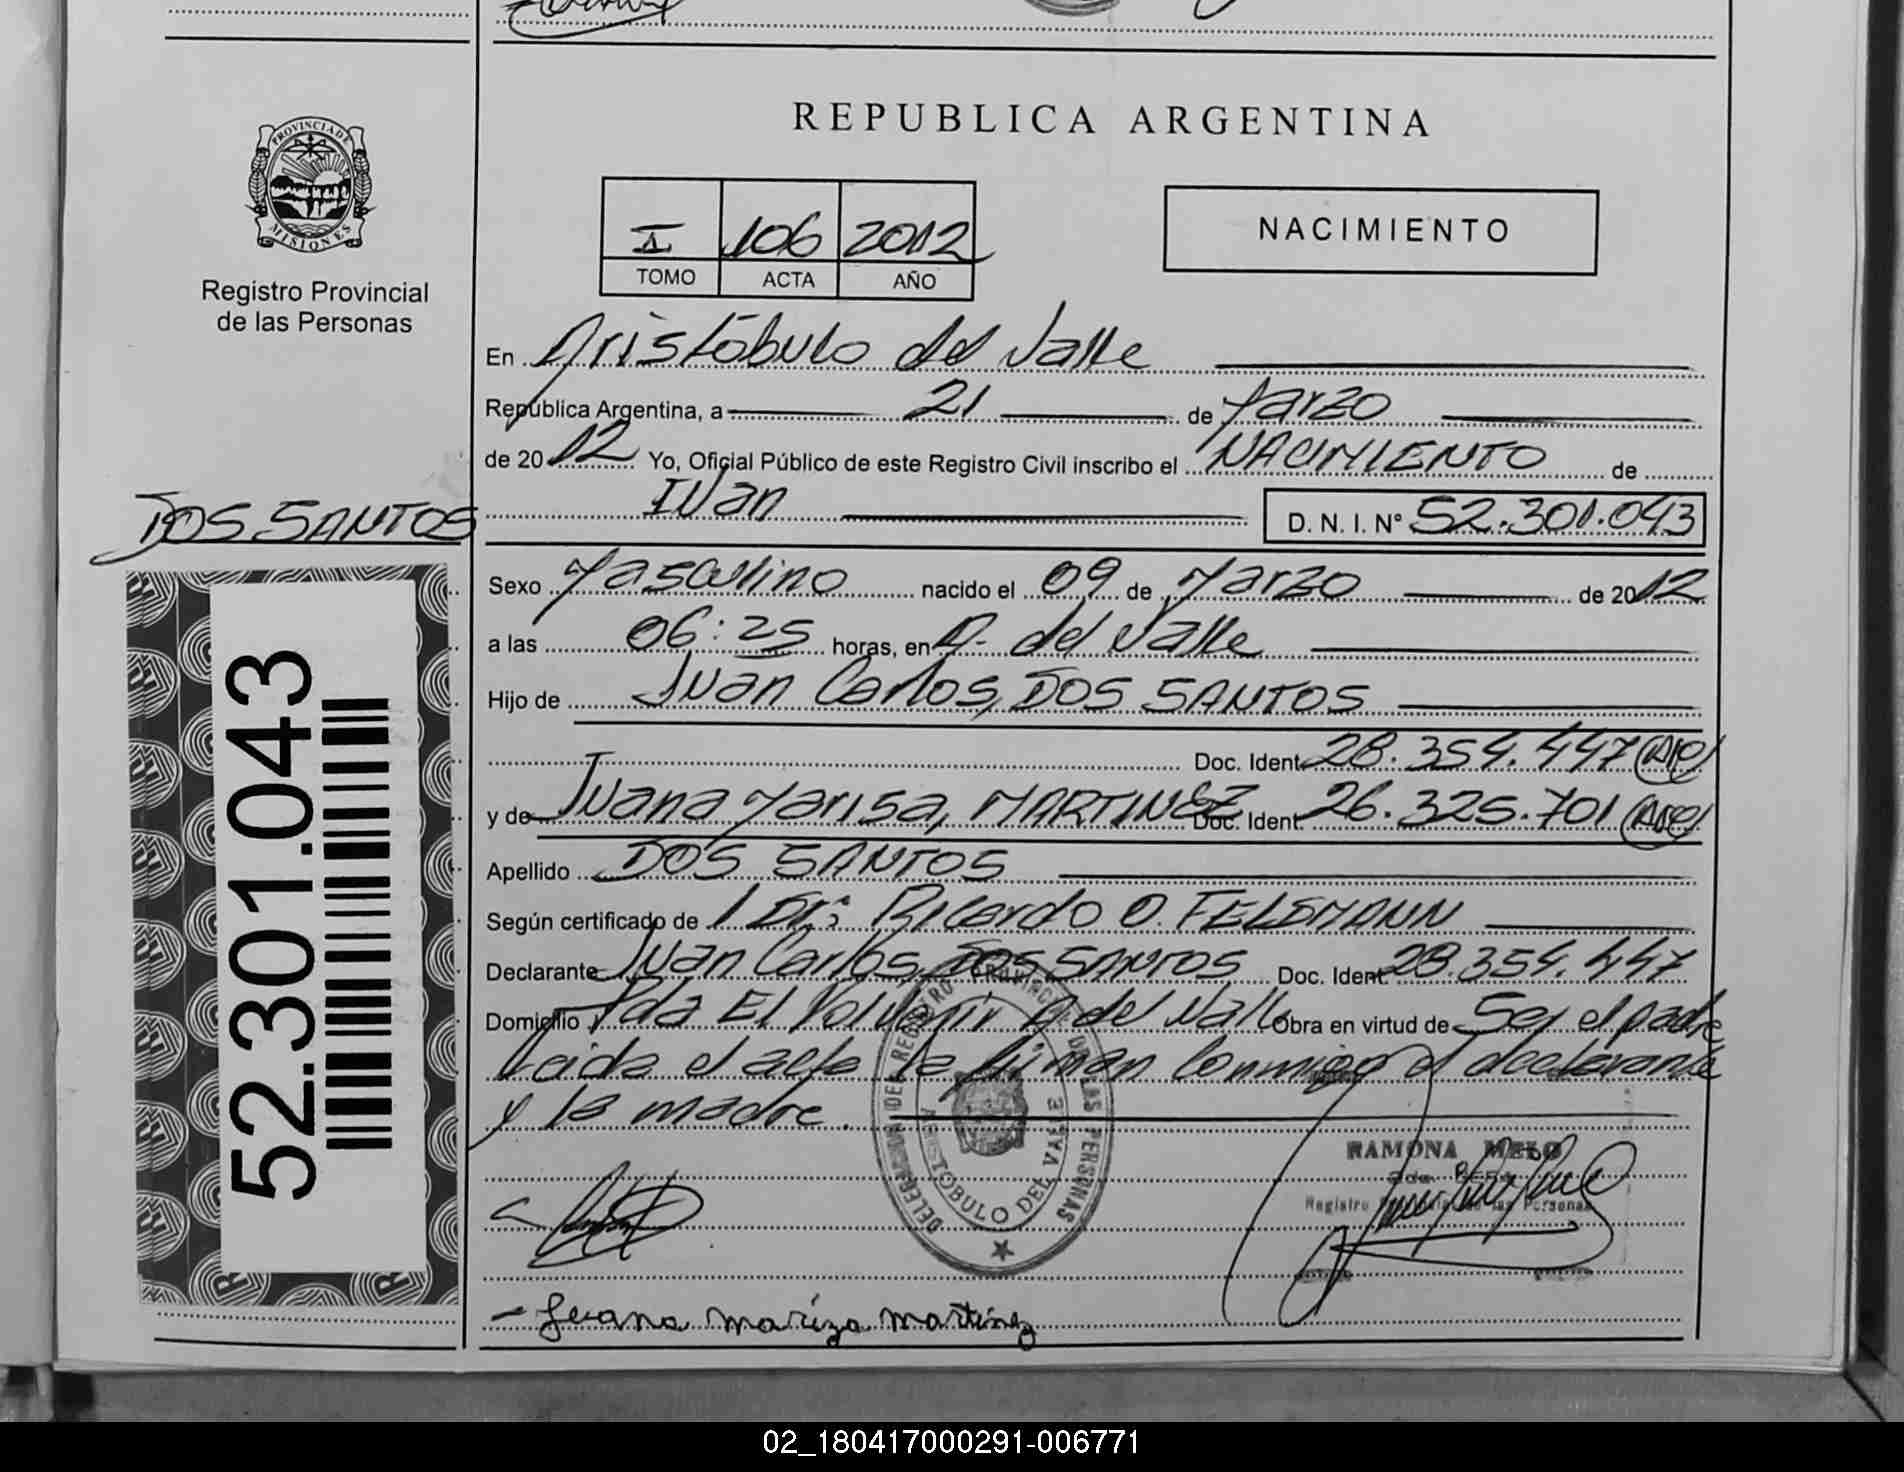 REPUBLICA ARGENTINA
PROVINCIA DE MISIONES
Registro Provincial
de las Personas
I 106 2012
TOMO ACTA AÑO
NACIMIENTO
En Aristóbulo del Valle
República Argentina, a 21 de Marzo
de 2012 Yo, Oficial Público de este Registro Civil inscribo el NACIMIENTO de
DOS SANTOS
Iván D. N. I. Nº 52.301.043
Sexo Masculino nacido el 09 de Marzo de 2012
a las 06:25 horas, en A. del Valle
Hijo de Juan Carlos, DOS SANTOS
Doc. Ident. 28.354.447
y de Juana Marisa, MARTINEZ Doc. Ident. 26.325.701
Apellido DOS SANTOS
Según certificado de Dr: Ricardo O. FELDMANN
Declarante Juan Carlos, DOS SANTOS Doc. Ident. 28.354.447
Domicilio Pda El Porvenir A del Valle Obra en virtud de Ser el padre
Leida el acta la firman conmigo el declarante
y la madre.
52.301.043
DELEGACION DEL REGISTRO PROVINCIAL DE LAS PERSONAS
ARISTOBULO DEL VALLE
RAMONA MELO
Registro Provincial de las Personas
Juana mariza martinez
02_180417000291-006771